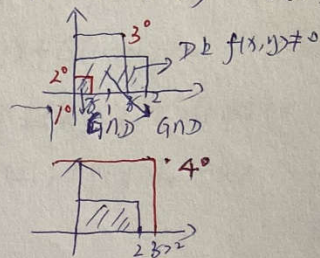 3°
D上 f(x,y)≠0
2°
1° x 1 x 2
G∩D G∩D
4°
2 3>2